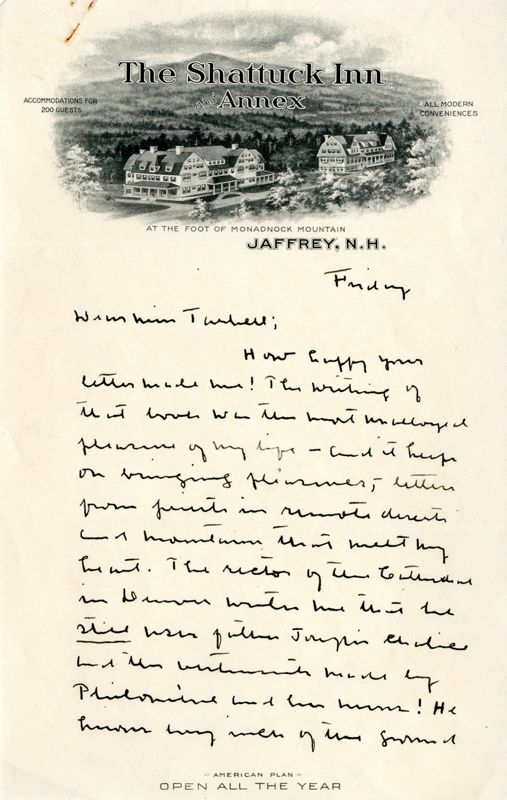 The Shattuck Inn
and Annex
ACCOMMODATIONS FOR
200 GUESTS
ALL MODERN
CONVENIENCES
AT THE FOOT OF MONADNOCK MOUNTAIN
JAFFREY, N.H.
Friday
Dear Miss Tarbell;
How happy your
letter made me! The writing of
that book was the most unalloyed
pleasure of my life — and it keeps
on bringing pleasures; letters
from priests in remote deserts
and mountains that melt my
heart. The rector of the Cathedral
in Denver writes me that he
still uses father Joseph's chalice
and the vestments made by
Philomène and her nuns! He
knows every inch of the ground
- AMERICAN PLAN -
OPEN ALL THE YEAR